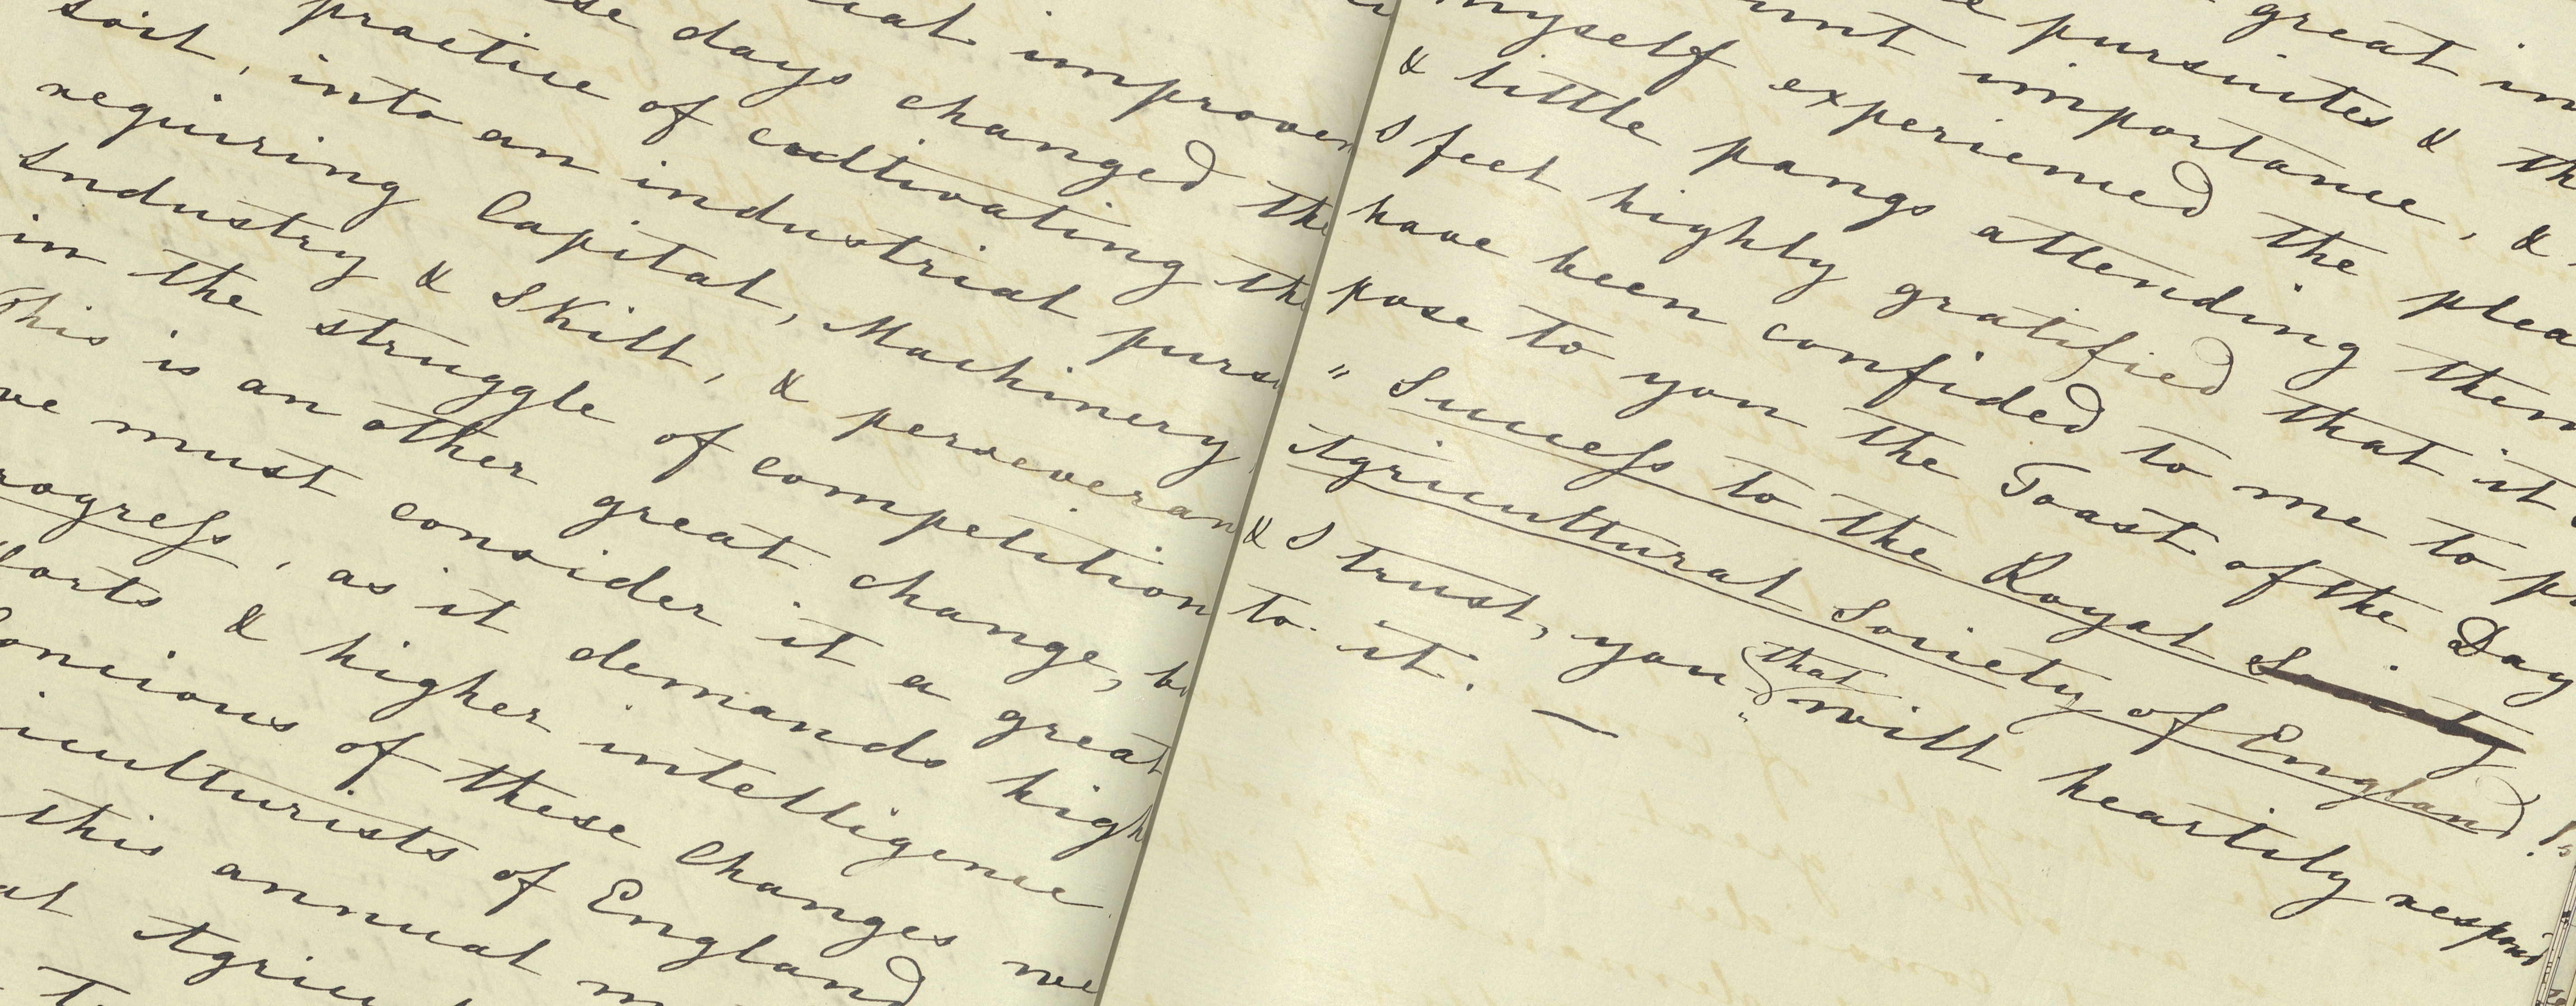 improvem
days changed the
practice of cultivating the
soil, into an industrial pursu
requiring Capital, Machinery,
Industry & Skill, & perseveran
in the struggle of competition
This is an other great change, bu
we must consider it a great
rogress, as it demands high
forts & higher intelligence
Concious of these Changes we
iculturists of England
this annual m
at Agricu
great in
pursuites & th
unt importance, &
myself experienced the plea
& little pangs attending them
I feel highly gratified that it
have been confided to me to p
pose to you the Toast of the Day
"Success to the Royal Society
Agricultural Society of England!"
& I trust, you that will heartily respond
to it. —